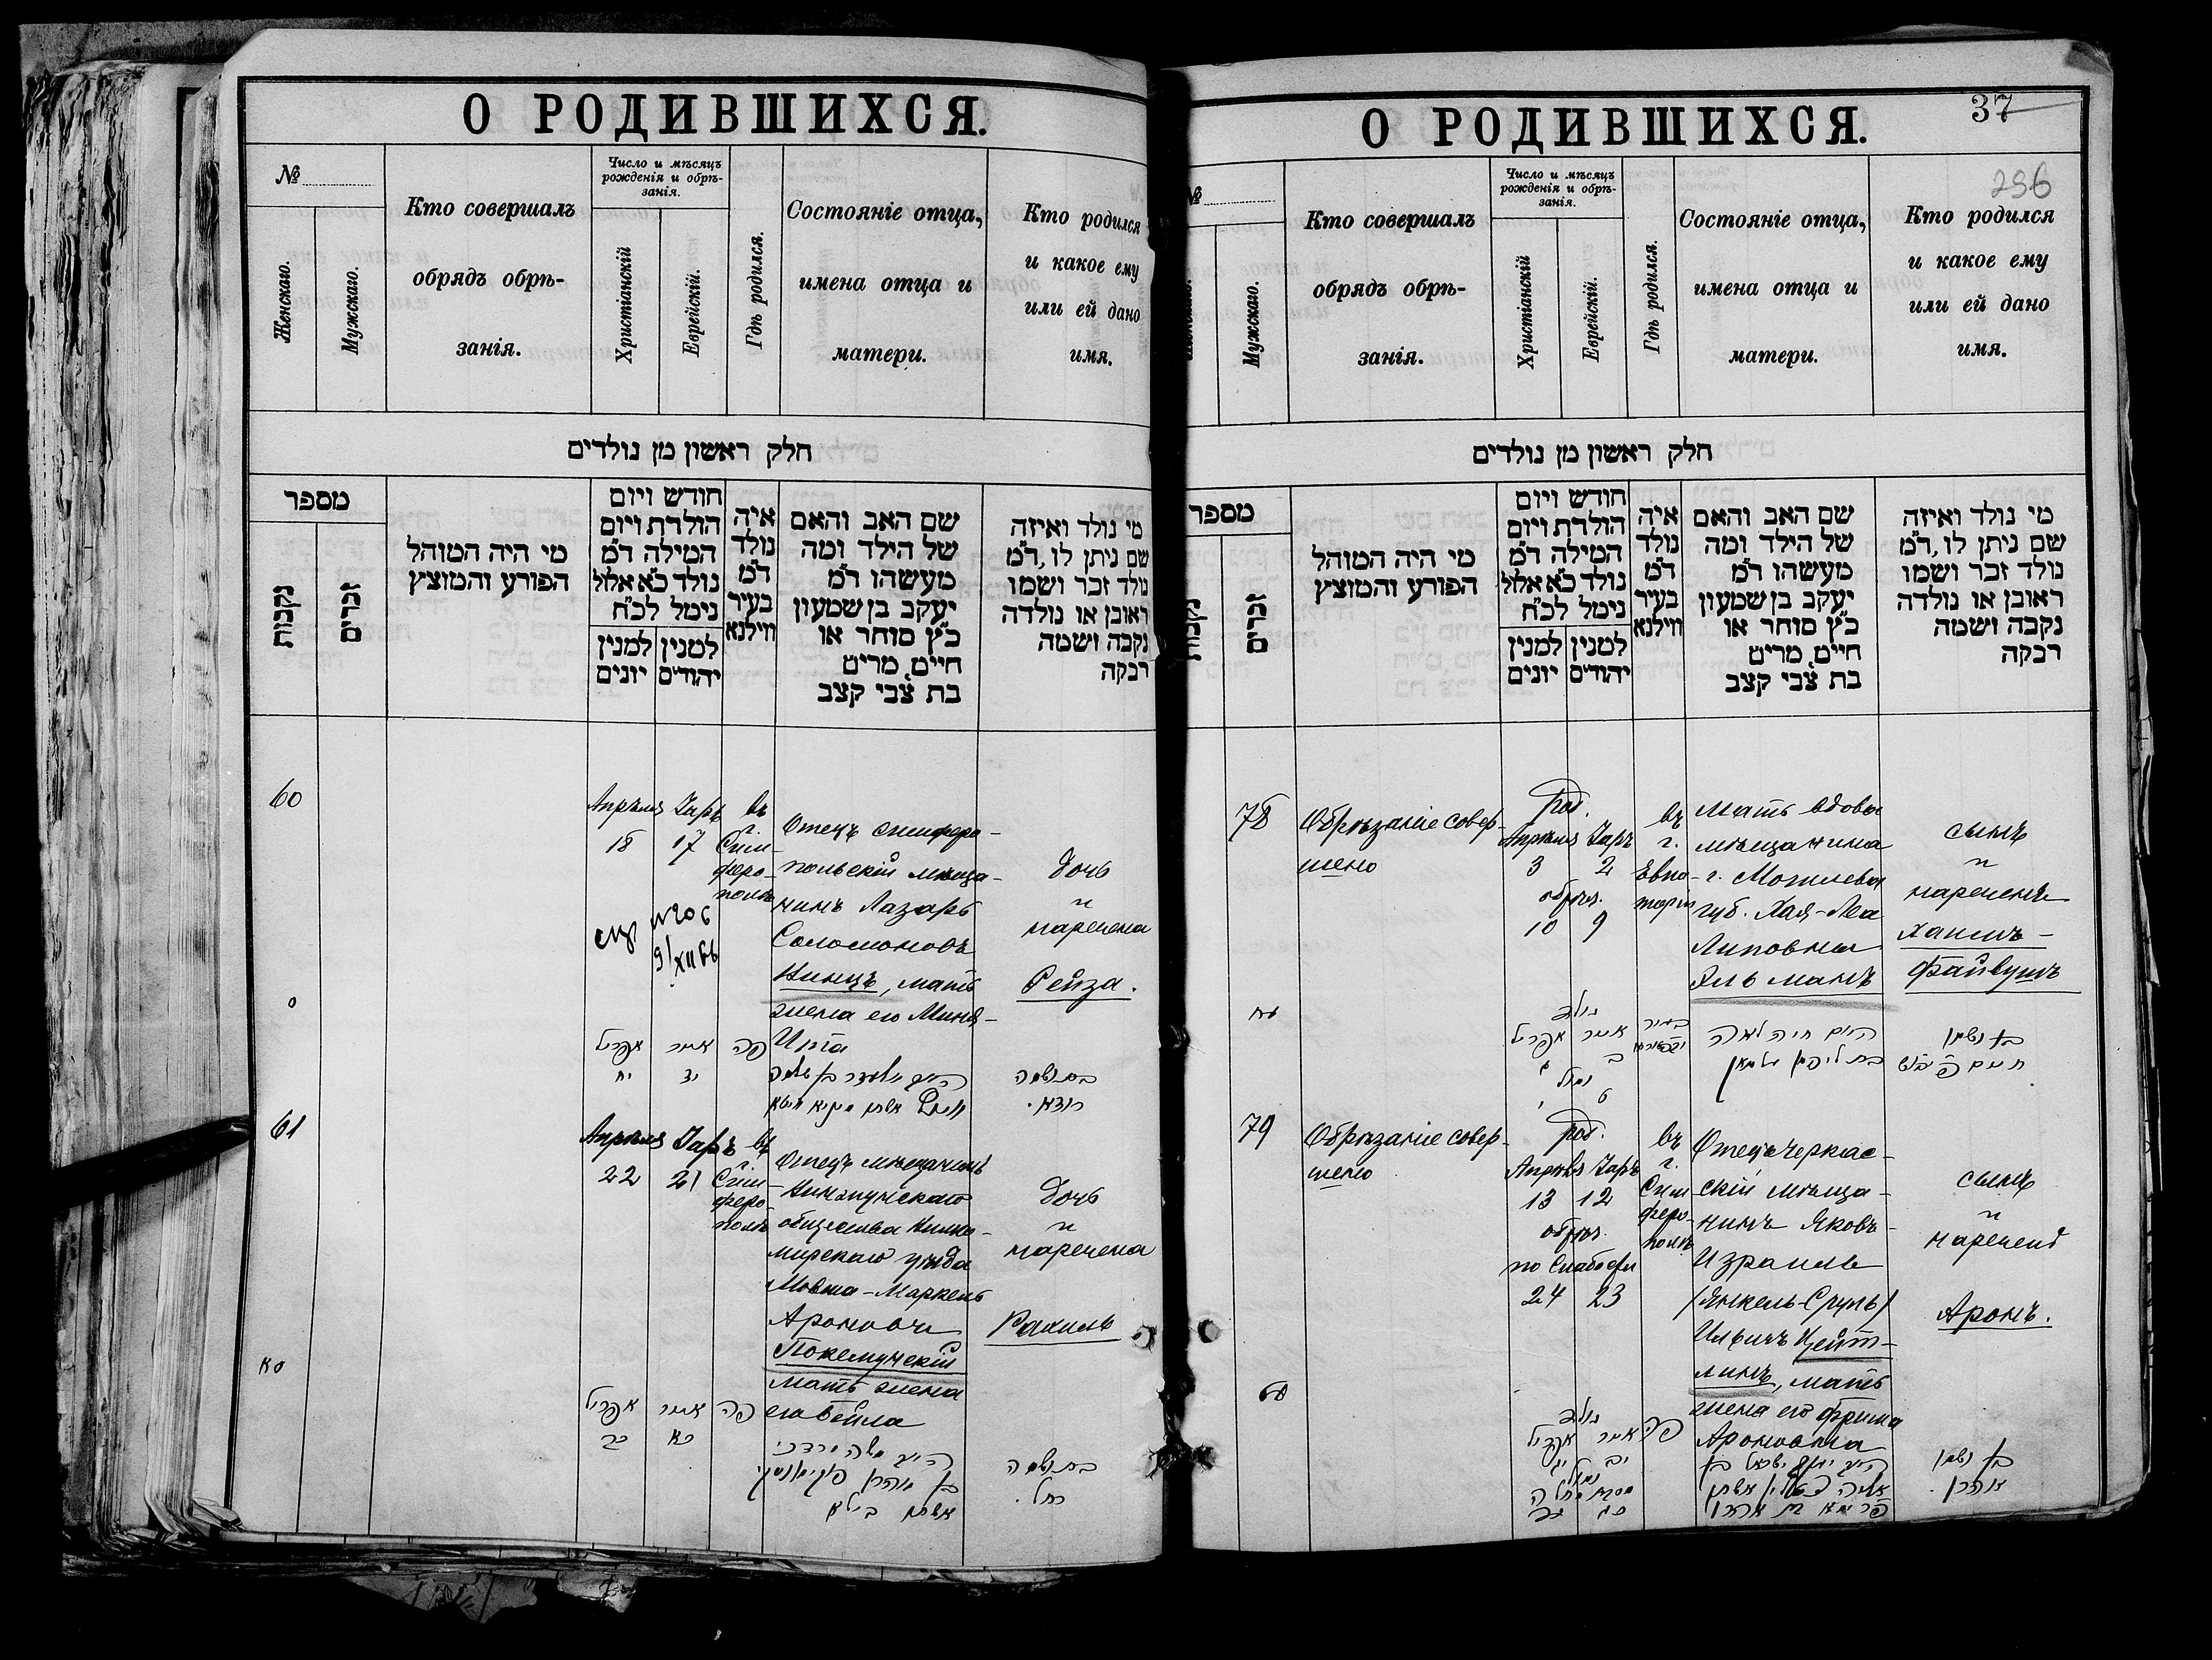 О РОДИВШИХСЯ.
№
Женскаго.
Мужскаго.
Кто совершалъ
обрядъ обрѣ-
занія.
Число и мѣсяцъ
рожденія и обрѣ-
занія.
Христіанскій
Еврейскій.
Гдѣ родился.
Состояніе отца,
имена отца и
матери.
Кто родился
и какое ему
или ей дано
имя.
חלק ראשון מן נולדים
מספר
נקבות
זכרים
מי היה המוהל
הפורע והמוצץ
חודש ויום
הולדת ויום
המילה ד"מ
נולד כ"א אלול
נימל לכ"ח
למנין יונים
למנין יהודים
איה
נולד
ד"מ
בעיר
ווילנא
שם האב והאם
של הילד ומה
מעשהו ד"מ
יעקב בן שמעון
כ"ץ סוחר או
חייט, מרים
בת צבי קצב
מי נולד ואיזה
שם ניתן לו, ד"מ
נולד זכר ושמו
ראובן או נולדה
נקבה ושמה
רבקה
60
Апрѣля
18
Іаръ
17
въ
г.
Сим-
феро-
полѣ
Отецъ симферо-
польскій мѣща-
нинъ Лазарь
Соломоновъ
Кинцъ, мать
жена его Миня-
Ита
дочь
и
наречена
Рейза.
אפריל
יח
אייר
יז
פה
בת ושמה
רוזא.
61
Апрѣля
22
Іаръ
21
въ
г.
Сим-
феро-
полѣ
Отецъ мѣщанинъ
общества
уѣзда
Мовша-Маркель
Ароновъ
Покемунскій
мать жена
его Бейла
дочь
и
наречена
Рахиль
אפריל
כב
אייר
כא
פה
בן אהרן
אשתו ביילא
בת ושמה
רחל.
О РОДИВШИХСЯ.
37
296
№
Мужскаго.
Кто совершалъ
обрядъ обрѣ-
занія.
Число и мѣсяцъ
рожденія и обрѣ-
занія.
Христіанскій
Еврейскій.
Гдѣ родился.
Состояніе отца,
имена отца и
матери.
Кто родился
и какое ему
или ей дано
имя.
חלק ראשון מן נולדים
מספר
נקבות
זכרים
מי היה המוהל
הפורע והמוצץ
חודש ויום
הולדת ויום
המילה ד"מ
נולד כ"א אלול
נימל לכ"ח
למנין יונים
למנין יהודים
איה
נולד
ד"מ
בעיר
ווילנא
שם האב והאם
של הילד ומה
מעשהו ד"מ
יעקב בן שמעון
כ"ץ סוחר או
חייט, מרים
בת צבי קצב
מי נולד ואיזה
שם ניתן לו, ד"מ
נולד זכר ושמו
ראובן או נולדה
נקבה ושמה
רבקה
78
Обрѣзаніе совер-
шено
род.
Апрѣля Іаръ
3 2
обрѣз.
10 9
въ
г.
Евпа-
торіи
Мать вдова
мѣщанина
г. Могилева
губ. Хая-Леа
Липовна
Эльманъ
сынъ
и
нареченъ
Хаимъ-
Файвушъ
נולד
אייר אפריל
ב ג
נימול
ט י
חיה לאה
בן ושמו
חיים פייבוש
79
Обрѣзаніе совер-
шено
род.
Апрѣля Іаръ
13 12
обрѣз.
по слабости
24 23
въ
г.
Сим-
феро-
полѣ
Отецъ черкас-
скій мѣща-
нинъ Яковъ-
Израиль
(Янкель-Сруль)
Ильичъ Цейт-
линъ, мать
жена его Фрума
Ароновна
сынъ
и
нареченъ
Аронъ.
נולד
אייר אפריל
יב יג
פה
בן ושמו
אהרן.